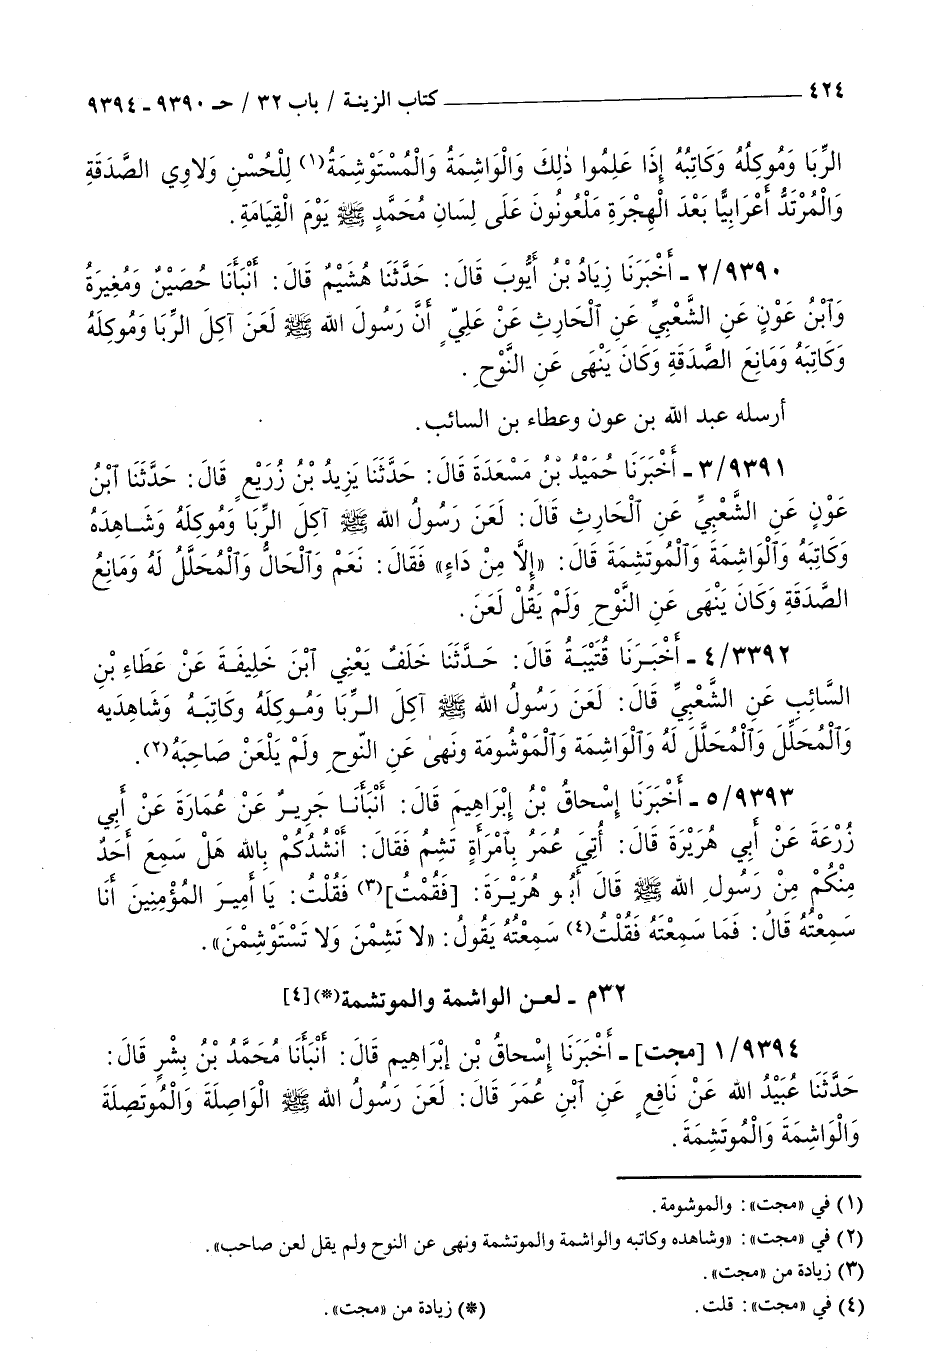 ٤٢٤ ــــــــ كتاب الزينة / باب ٣٢ / حـ ٩٣٩٠ ـ ٩٣٩٤
الرِّبَا وَمُوكِلُهُ وَكَاتِبُهُ إِذَا عَلِمُوا ذٰلِكَ وَالْوَاشِمَةُ وَالْمُسْتَوْشِمَةُ(١) لِلْحُسْنِ وَلاوِي الصَّدَقَةِ
وَالْمُرْتَدُّ أَعْرَابِيًّا بَعْدَ الْهِجْرَةِ مَلْعُونُونَ عَلَى لِسَانِ مُحَمَّدٍ ﷺ يَوْمَ الْقِيَامَةِ.
٢/٩٣٩٠ ـ أَخْبَرَنَا زِيَادُ بْنُ أَيُّوبَ قَالَ: حَدَّثَنَا هُشَيْمٌ قَالَ: أَنْبَأَنَا حُصَيْنٌ وَمُغِيرَةُ
وَٱبْنُ عَوْنٍ عَنِ الشَّعْبِيِّ عَنِ ٱلْحَارِثِ عَنْ عَلِيّ أَنَّ رَسُولَ الله ﷺ لَعَنَ آكِلَ الرِّبَا وَمُوكِلَهُ
وَكَاتِبَهُ وَمَانِعَ الصَّدَقَةِ وَكَانَ يَنْهَى عَنِ النَّوْحِ.
أرسله عبد الله بن عون وعطاء بن السائب.
٣/٩٣٩١ ـ أَخْبَرَنَا حُمَيْدُ بْنُ مَسْعَدَةَ قَالَ: حَدَّثَنَا يَزِيدُ بْنُ زُرَيْعٍ قَالَ: حَدَّثَنَا ٱبْنُ
عَوْنٍ عَنِ الشَّعْبِيِّ عَنِ ٱلْحَارِثِ قَالَ: لَعَنَ رَسُولُ الله ﷺ آكِلَ الرِّبَا وَمُوكِلَهُ وَشَاهِدَهُ
وَكَاتِبَهُ وَٱلْوَاشِمَةَ وَٱلْمُوتَشِمَةَ قَالَ: «إِلَّا مِنْ دَاءٍ» فَقَالَ: نَعَمْ وَٱلْحَالُّ وَٱلْمُحَلَّلُ لَهُ وَمَانِعُ
الصَّدَقَةِ وَكَانَ يَنْهَى عَنِ النَّوْحِ وَلَمْ يَقُلْ لَعَنَ.
٤/٣٣٩٢ ـ أَخْبَرَنَا قُتَيْبَةُ قَالَ: حَدَّثَنَا خَلَفٌ يَعْنِي ٱبْنَ خَلِيفَةَ عَنْ عَطَاءِ بْنِ
السَّائِبِ عَنِ الشَّعْبِيِّ قَالَ: لَعَنَ رَسُولُ الله ﷺ آكِلَ الرِّبَا وَمُوكِلَهُ وكَاتِبَهُ وَشَاهِدَيه
وَٱلْمُحَلِّلَ وَٱلْمُحَلَّلَ لَهُ وَٱلْوَاشِمَةَ وَٱلْمَوْشُومَة ونَهىٰ عَنِ النّوْحِ ولَمْ يَلْعَنْ صَاحِبَهُ(٢).
٥/٩٣٩٣ ـ أَخْبَرَنَا إِسْحاقُ بْنُ إِبْرَاهِيمَ قَالَ: أَنْبَأَنَا جَرِيرٌ عَنْ عُمَارَةَ عَنْ أَبِي
زُرْعَةَ عَنْ أَبِي هُرَيْرَةَ قَالَ: أُتِيَ عُمَرُ بِٱمْرَأَةٍ تَشِمُ فَقَالَ: أَنْشُدُكُمْ بِالله هَلْ سَمِعَ أَحَدٌ
مِنْكُمْ مِنْ رَسُولِ الله ﷺ قَالَ أَبُو هُرَيْرَةَ: [فَقُمْتُ](٣) فَقُلْتُ: يَا أَمِيرَ الْمُؤْمِنِينَ أَنَا
سَمِعْتُهُ قَالَ: فَمَا سَمِعْتَهُ فَقُلْتُ(٤) سَمِعْتُهُ يَقُولُ: «لا تَشِمْنَ وَلا تَسْتَوْشِمْنَ».
٣٢م ـ لعن الواشمة والموتشمة(*)[٤]
١/٩٣٩٤ [مجت] ـ أَخْبَرَنَا إِسْحاقُ بْن إبْرَاهِيم قَالَ: أَنْبَأَنَا مُحَمَّدُ بْنُ بِشْرٍ قَالَ:
حَدَّثَنَا عُبَيْدُ الله عَنْ نَافِعٍ عَنِ ٱبْنِ عُمَرَ قَالَ: لَعَنَ رَسُولُ الله ﷺ الْوَاصِلَةَ وَالْمُوتَصِلَةَ
وَالْوَاشِمَةَ وَالْمُوتَشِمَةَ.
(١) في «مجت»: والموشومة.
(٢) في «مجت»: «وشاهده وكاتبه والواشمة والموتشمة ونهى عن النوح ولم يقل لعن صاحب».
(٣) زيادة من «مجت».
(٤) في «مجت»: قلت. (*) زيادة من «مجت».